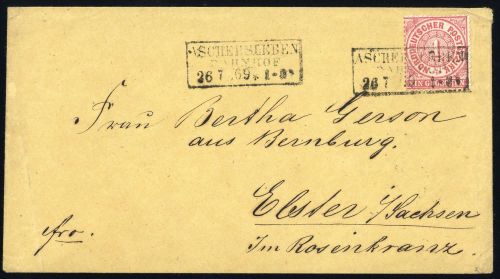 ASCHERSLEBEN
BAHNHOF
26 7 69 * 1-
ASCHERSLEBEN
26 7
NORDDEUTSCHER POST
1
EIN GROSCHEN
Frau Bertha Gerson
aus Bernburg.
Elster i/Sachsen
Im Rosenkranz.
fro.